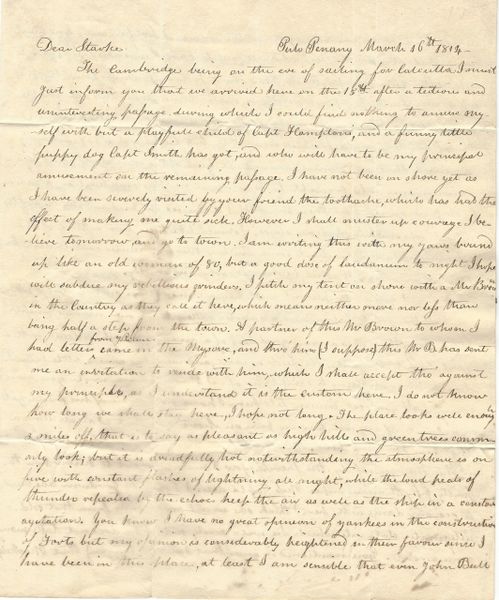 Dear Starke Pulo Penang March 16th 1814
The Cambridge being on the eve of sailing for Calcutta I must
just inform you that we arrived here on the 15th after a tedious and
uninteresting passage during which I could find nothing to amuse my-
self with but a playfull child of Capt Hamptons, and a funny little
puppy dog Capt Smith has got, and who will have to be my principal
amusement on the remaining passage. I have not been on shore yet as
I have been severely visited by your friend the toothache, which has had the
effect of making me quite sick. However I shall muster up courage I be-
lieve tomorrow and go to town. I am writing this with my jaws bound
up like an old woman of 80, but a good dose of laudanum to night I hope
will subdue my rebellious grinders. I pitch my tent on shore with a Mr Brown
in the Country as they call it here, which means neither more nor less than
being half a step from the town. A partner of this Mr Brown to whom I
had letters from came in the Mysore, and thro' him (I suppose) this Mr B. has sent
me an invitation to reside with him, which I shall accept tho' against
my principles, as I understand it is the custom here. I do not know
how long we shall stay here, I hope not long. The place looks well enough
2 miles off, that is to say as pleasant as high hills and green trees comm-
only look; but it is dreadfully hot notwithstanding the atmosphere is on
fire with constant flashes of lightning all night, while the loud peals of
thunder repeated by the echoes keep the air as well as the ship in a constant
agitation. You know I have no great opinion of yankees in the construction
of Forts but my opinion is considerably heightened in their favour since I
have been in this place, at least I am sensible that even John Bull